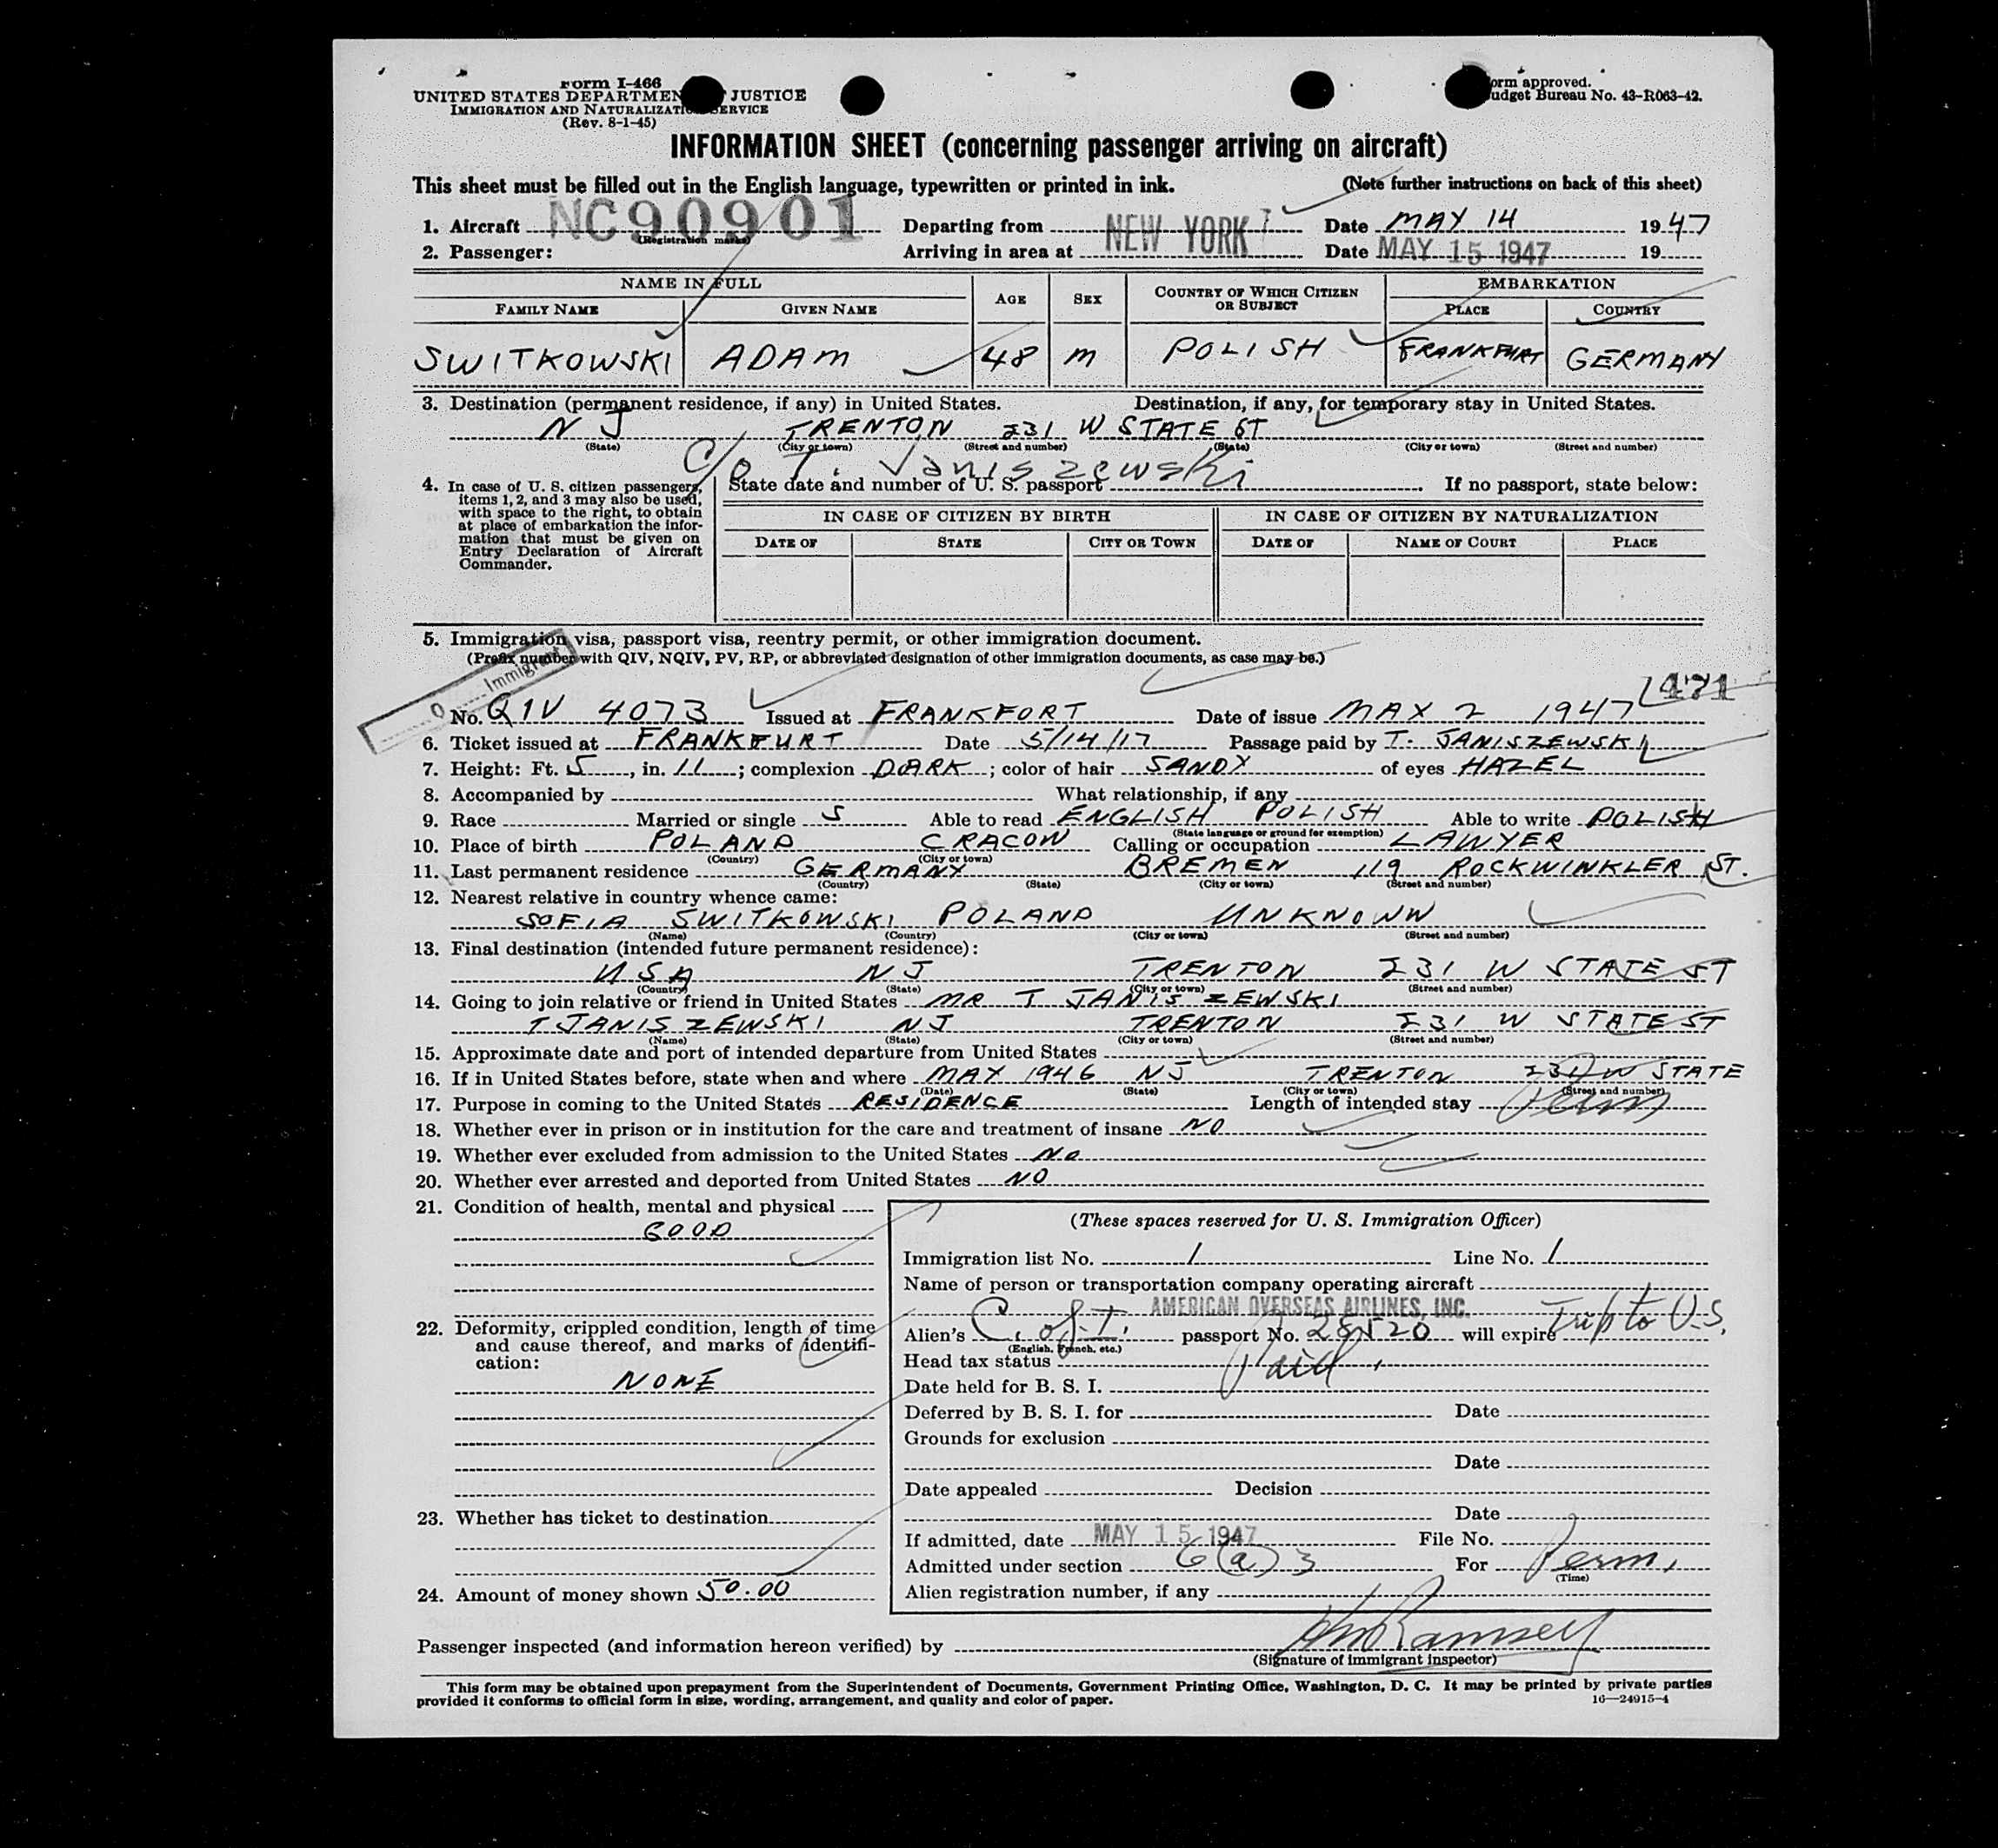 Form I-466
UNITED STATES DEPARTMEN JUSTICE
IMMIGRATION AND NATURALIZATI SERVICE
(Rev. 8-1-45)
orm approved.
udget Bureau No. 43-R063-42.
INFORMATION SHEET (concerning passenger arriving on aircraft)
This sheet must be filled out in the English language, typewritten or printed in ink. (Note further instructions on back of this sheet)
1. Aircraft NC90901 Departing from Date MAY 14 1947
(Registration marks)
2. Passenger: Arriving in area at NEW YORK Date MAY 15 1947 19
NAME IN FULL AGE SEX COUNTRY OF WHICH CITIZEN OR SUBJECT EMBARKATION
FAMILY NAME GIVEN NAME PLACE COUNTRY
SWITKOWSKI ADAM 48 M POLISH FRANKFURT GERMANY
3. Destination (permanent residence, if any) in United States. Destination, if any, for temporary stay in United States.
N J TRENTON 231 W STATE ST
(State) (City or town) (Street and number) (State) (City or town) (Street and number)
C/o T. Janiszewski
4. In case of U. S. citizen passengers, items 1, 2, and 3 may also be used, with space to the right, to obtain at place of embarkation the information that must be given on Entry Declaration of Aircraft Commander.
State date and number of U. S. passport If no passport, state below:
IN CASE OF CITIZEN BY BIRTH IN CASE OF CITIZEN BY NATURALIZATION
DATE OF STATE CITY OR TOWN DATE OF NAME OF COURT PLACE
5. Immigration visa, passport visa, reentry permit, or other immigration document.
(Prefix number with QIV, NQIV, PV, RP, or abbreviated designation of other immigration documents, as case may be.)
O Immigrant
471
No. QIV 4073 Issued at FRANKFORT Date of issue MAY 2 1947
6. Ticket issued at FRANKFURT Date 5/14/17 Passage paid by T. JANISZEWSKI
7. Height: Ft. 5, in. 11; complexion DARK; color of hair SANDY of eyes HAZEL
8. Accompanied by What relationship, if any
9. Race Married or single S Able to read ENGLISH POLISH Able to write POLISH
(State language or ground for exemption)
10. Place of birth POLAND CRACOW Calling or occupation LAWYER
(Country) (City or town)
11. Last permanent residence GERMANY BREMEN 119 ROCKWINKLER ST.
(Country) (State) (City or town) (Street and number)
12. Nearest relative in country whence came:
SOFIA SWITKOWSKI POLAND UNKNOWN
(Name) (Country) (City or town) (Street and number)
13. Final destination (intended future permanent residence):
USA NJ TRENTON 231 W STATE ST
(Country) (State) (City or town) (Street and number)
14. Going to join relative or friend in United States MR T JANISZEWSKI
T JANISZEWSKI NJ TRENTON 231 W STATE ST
(Name) (State) (City or town) (Street and number)
15. Approximate date and port of intended departure from United States
16. If in United States before, state when and where MAY 1946 NJ TRENTON 231 W STATE
(Date) (State) (City or town) (Street and number)
17. Purpose in coming to the United States RESIDENCE Length of intended stay Perm
18. Whether ever in prison or in institution for the care and treatment of insane NO
19. Whether ever excluded from admission to the United States NO
20. Whether ever arrested and deported from United States NO
21. Condition of health, mental and physical
GOOD
22. Deformity, crippled condition, length of time and cause thereof, and marks of identification:
NONE
23. Whether has ticket to destination
24. Amount of money shown 50.00
(These spaces reserved for U. S. Immigration Officer)
Immigration list No. 1 Line No. 1
Name of person or transportation company operating aircraft
AMERICAN OVERSEAS AIRLINES, INC.
Alien's C. of I. passport No. 28520 will expire Trip to U.S.
(English, French, etc.)
Head tax status Paid.
Date held for B. S. I.
Deferred by B. S. I. for Date
Grounds for exclusion
Date
Date appealed Decision
Date
If admitted, date MAY 15 1947 File No.
Admitted under section 6(a)3 For Perm.
(Time)
Alien registration number, if any
Passenger inspected (and information hereon verified) by Ramsey
(Signature of immigrant inspector)
This form may be obtained upon prepayment from the Superintendent of Documents, Government Printing Office, Washington, D. C. It may be printed by private parties
provided it conforms to official form in size, wording, arrangement, and quality and color of paper. 16—24915-4